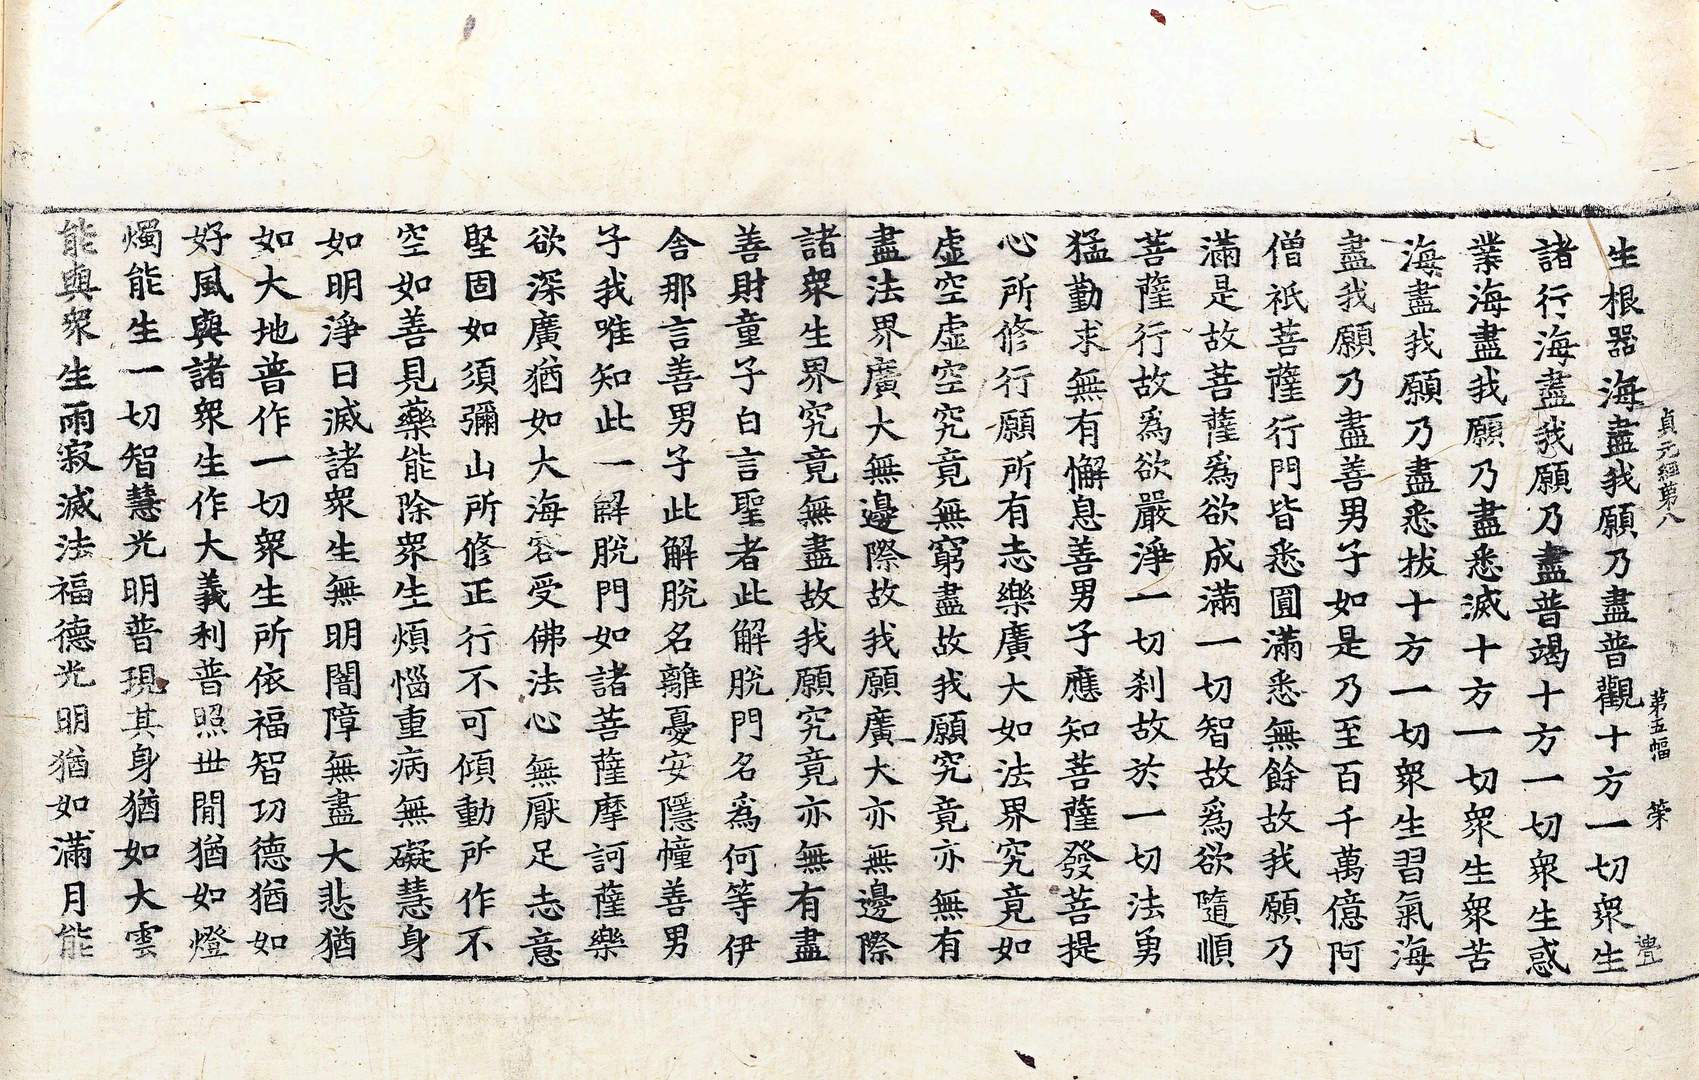 貞元經第八 第五幅 榮 豊
生根器海盡我願乃盡普觀十方一切衆生
諸行海盡我願乃盡普竭十方一切衆生惑
業海盡我願乃盡悉滅十方一切衆生衆苦
海盡我願乃盡悉拔十方一切衆生習氣海
盡我願乃盡善男子如是乃至百千萬億阿
僧祇菩薩行門皆悉圓滿悉無餘故我願乃
滿是故菩薩爲欲成滿一切智故爲欲隨順
菩薩行故爲欲嚴淨一切刹故於一切法勇
猛勤求無有懈息善男子應知菩薩發菩提
心所修行願所有志樂廣大如法界究竟如
虛空虛空究竟無窮盡故我願究竟亦無有
盡法界廣大無邊際故我願廣大亦無邊際
諸衆生界究竟無盡故我願究竟亦無有盡
善財童子白言聖者此解脫門名爲何等伊
舍那言善男子此解脫名離憂安隱幢善男
子我唯知此一解脫門如諸菩薩摩訶薩樂
欲深廣猶如大海容受佛法心無厭足志意
堅固如須彌山所修正行不可傾動所作不
空如善見藥能除衆生煩惱重病無礙慧身
如明淨日滅諸衆生無明闇障無盡大悲猶
如大地普作一切衆生所依福智功德猶如
好風與諸衆生作大義利普照世間猶如燈
燭能生一切智慧光明普現其身猶如大雲
能與衆生雨寂滅法福德光明猶如滿月能